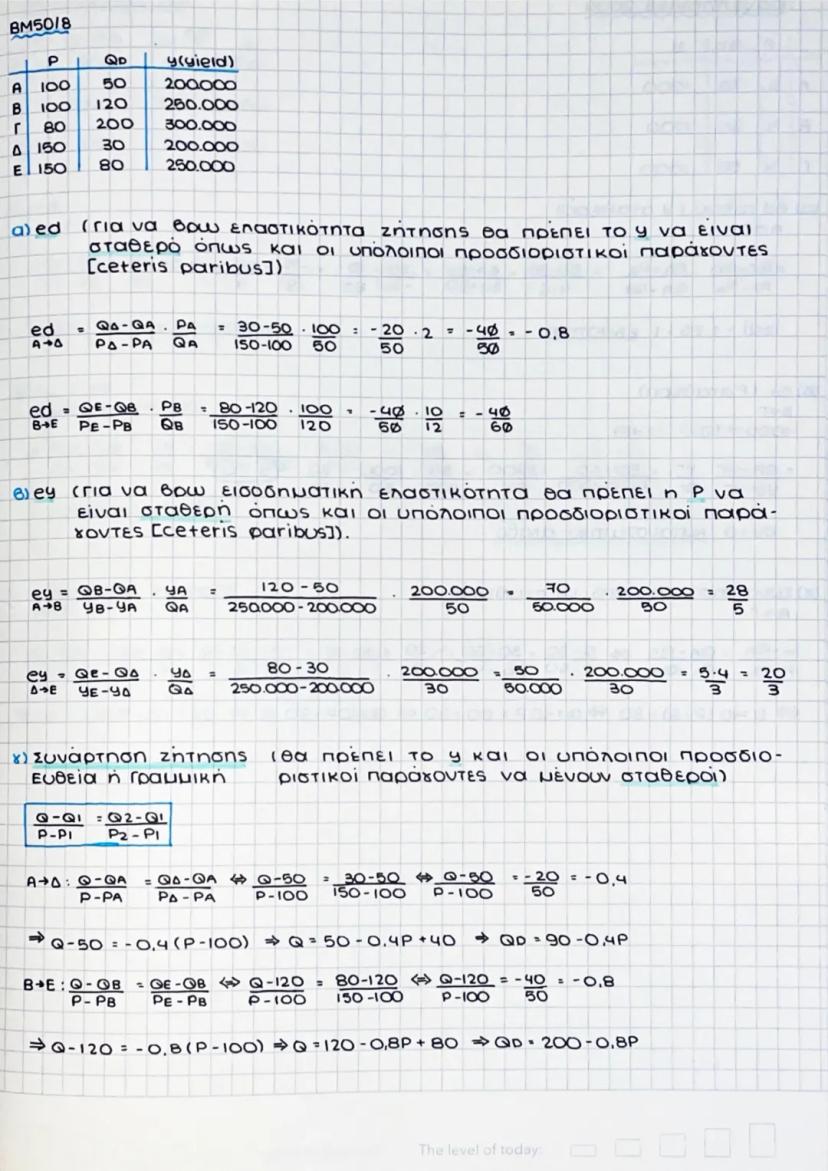 BM50/8
P QD y(yield)
A 100 50 200.000
B 100 120 250.000
Γ 80 200 300.000
Δ 150 30 200.000
E 150 80 250.000
α) ed (Για να βρω ελαστικότητα ζήτησης θα πρέπει το y να είναι
σταθερό όπως και οι υπόλοιποι προσδιοριστικοί παράγοντες
[ceteris paribus])
ed A→Δ = QΔ-QA / PΔ-PA · PA / QA = 30-50 / 150-100 · 100 / 50 = -20 / 50 · 2 = -40 / 50 = -0,8
ed B→E = QE-QB / PE-PB · PB / QB = 80-120 / 150-100 · 100 / 120 = -40 / 50 · 10 / 12 = -40 / 60
β) ey (Για να βρω εισοδηματική ελαστικότητα θα πρέπει η P να
είναι σταθερή όπως και οι υπόλοιποι προσδιοριστικοί παρά-
γοντες [ceteris paribus]).
ey A→B = QB-QA / YB-YA · YA / QA = 120-50 / 250.000-200.000 · 200.000 / 50 = 70 / 50.000 · 200.000 / 50 = 28 / 5
ey Δ→E = QE-QΔ / YE-YΔ · YΔ / QΔ = 80-30 / 250.000-200.000 · 200.000 / 30 = 50 / 50.000 · 200.000 / 30 = 5·4 / 3 = 20 / 3
γ) Συνάρτηση ζήτησης (θα πρέπει το y και οι υπόλοιποι προσδιο-
Ευθεία ή Γραμμική ριστικοί παράγοντες να μένουν σταθεροί)
Q-Q1 / P-P1 = Q2-Q1 / P2-P1
A→Δ: Q-QA / P-PA = QΔ-QA / PΔ-PA ⇔ Q-50 / P-100 = 30-50 / 150-100 ⇔ Q-50 / P-100 = -20 / 50 = -0,4
⇒ Q-50 = -0,4(P-100) ⇒ Q = 50-0,4P+40 ⇒ QD = 90-0,4P
B→E: Q-QB / P-PB = QE-QB / PE-PB ⇔ Q-120 / P-100 = 80-120 / 150-100 ⇔ Q-120 / P-100 = -40 / 50 = -0,8
⇒ Q-120 = -0,8(P-100) ⇒ Q = 120-0,8P+80 ⇒ QD = 200-0,8P
The level of today: